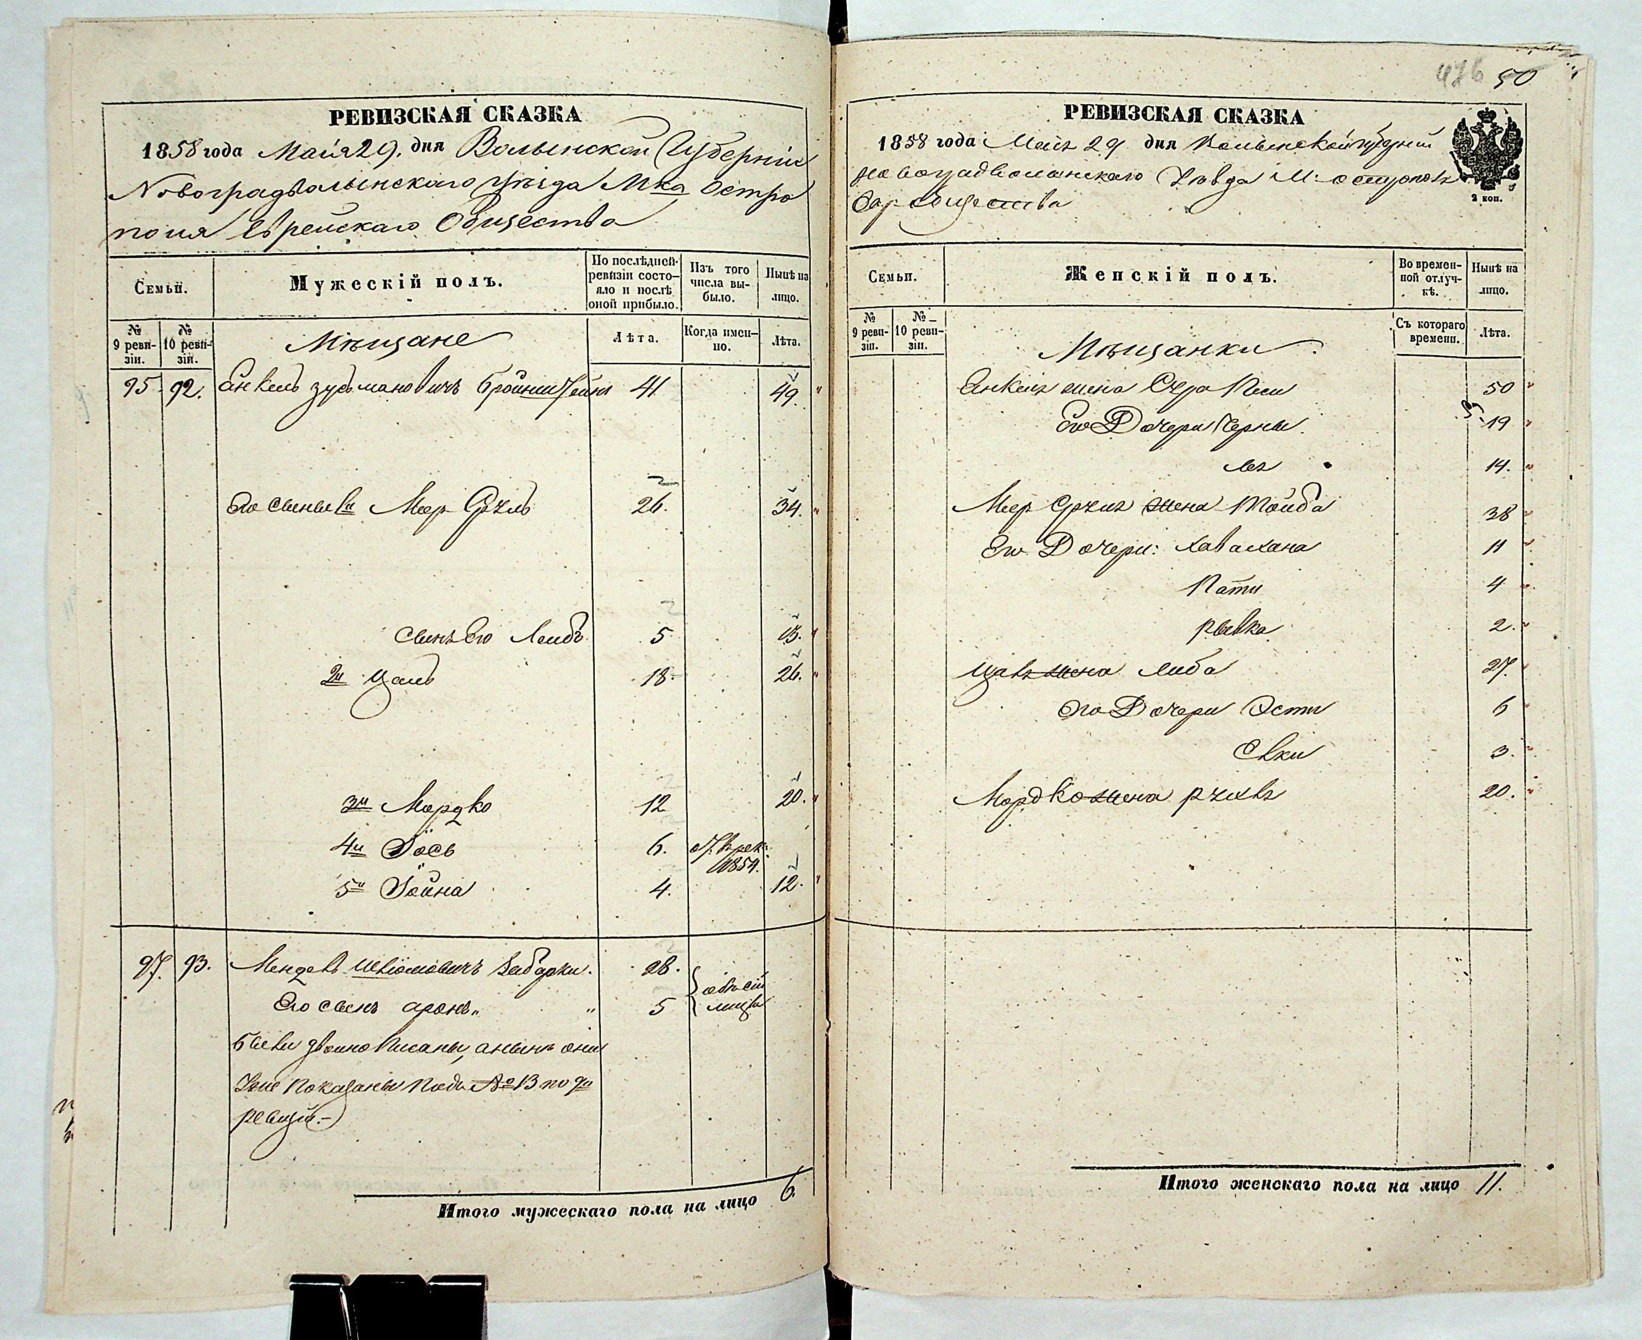 476 50
РЕВИЗСКАЯ СКАЗКА
1858 года Майя 29. дня Волынской Губерніи
Новоградволынскаго уѣзда Мка Остро
поля Еврейскаго Общества
Семьи.
Мужескій полъ.
По послѣдней ревизіи состояло и послѣ оной прибыло.
Изъ того числа выбыло.
Нынѣ на лицо.
№ 9 ревизіи.
№ 10 ревизіи.
Мѣщане
Лѣта.
Когда именно.
Лѣта.
95. 92. Янкель Зусьмановичъ 41 49.
Его сыновья 1й Меер Сруль 26. 34.
сынъ его Лейбъ 5 13.
2й Цаль 18. 26.
3й Мордко 12 20.
4й Іось 6. 1854.
5й Іойна 4. 12.
97. 93. Мендель Шліомовичъ 28.
Его сынъ Аронъ 5
были двойно писаны, а нынѣ они
уже показаны подъ №13 по 9й
ревизіи.
Итого мужескаго пола на лицо 6.
РЕВИЗСКАЯ СКАЗКА
1858 года Майя 29 дня Волынской губерніи
Новоградволынскаго уѣзда М: Острополя
Евр. Общества
2 коп.
Семьи.
Женскій полъ.
Во временной отлучкѣ.
Нынѣ на лицо.
№ 9 ревизіи.
№ 10 ревизіи.
Мѣщанки
Съ котораго времени.
Лѣта.
Янкеля жена Сура Песи 50
Его Дочери Черны 19
14.
Меер Сруля жена Тойба 38
Его Дочери: Хава Хана 11
Пати 4
Рывка 2.
Цаля жена Либа 27.
Его Дочери Эсти 6
3.
Мордко жена Рухля 20.
Итого женскаго пола на лицо 11.